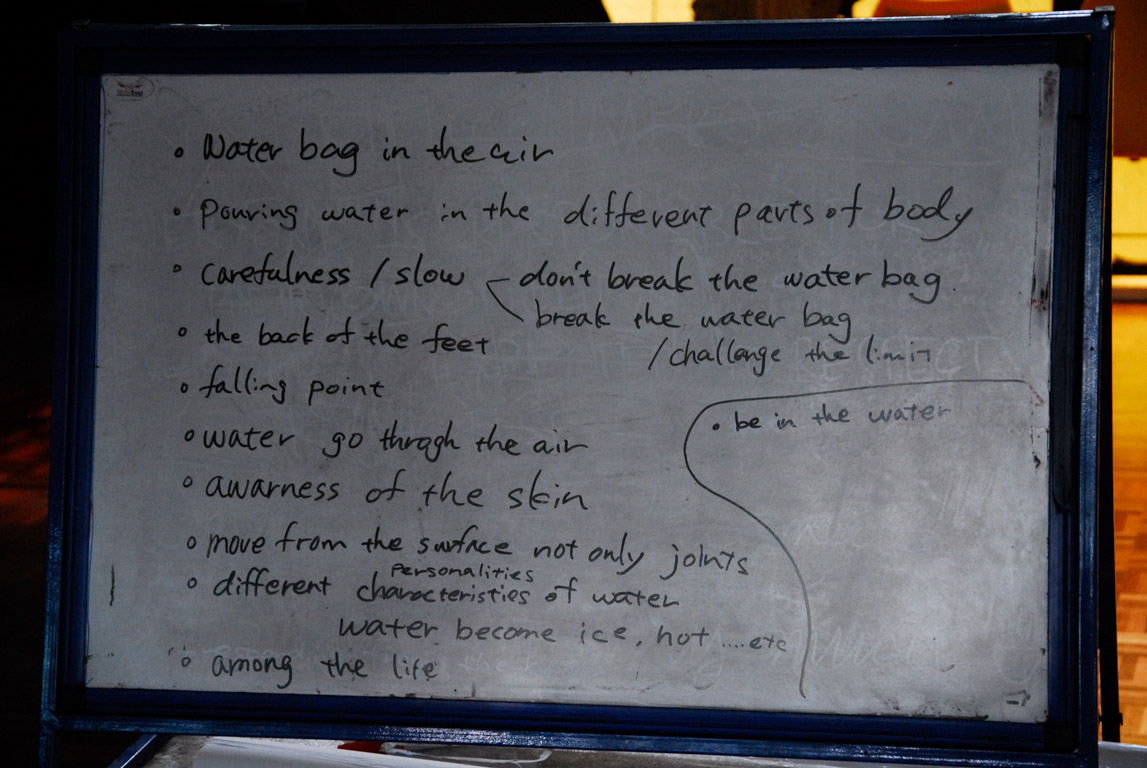 • Water bag in the air
• pouring water in the different parts of body
• carefulness / slow – don't break the water bag.
break the water bag
/challenge the limit
• the back of the feet
• falling point
• be in the water
• water go throgh the air
• awarness of the skin
• move from the surface not only joints
personalities
• different characteristies of water
water become ice, hot ....etc
• among the life